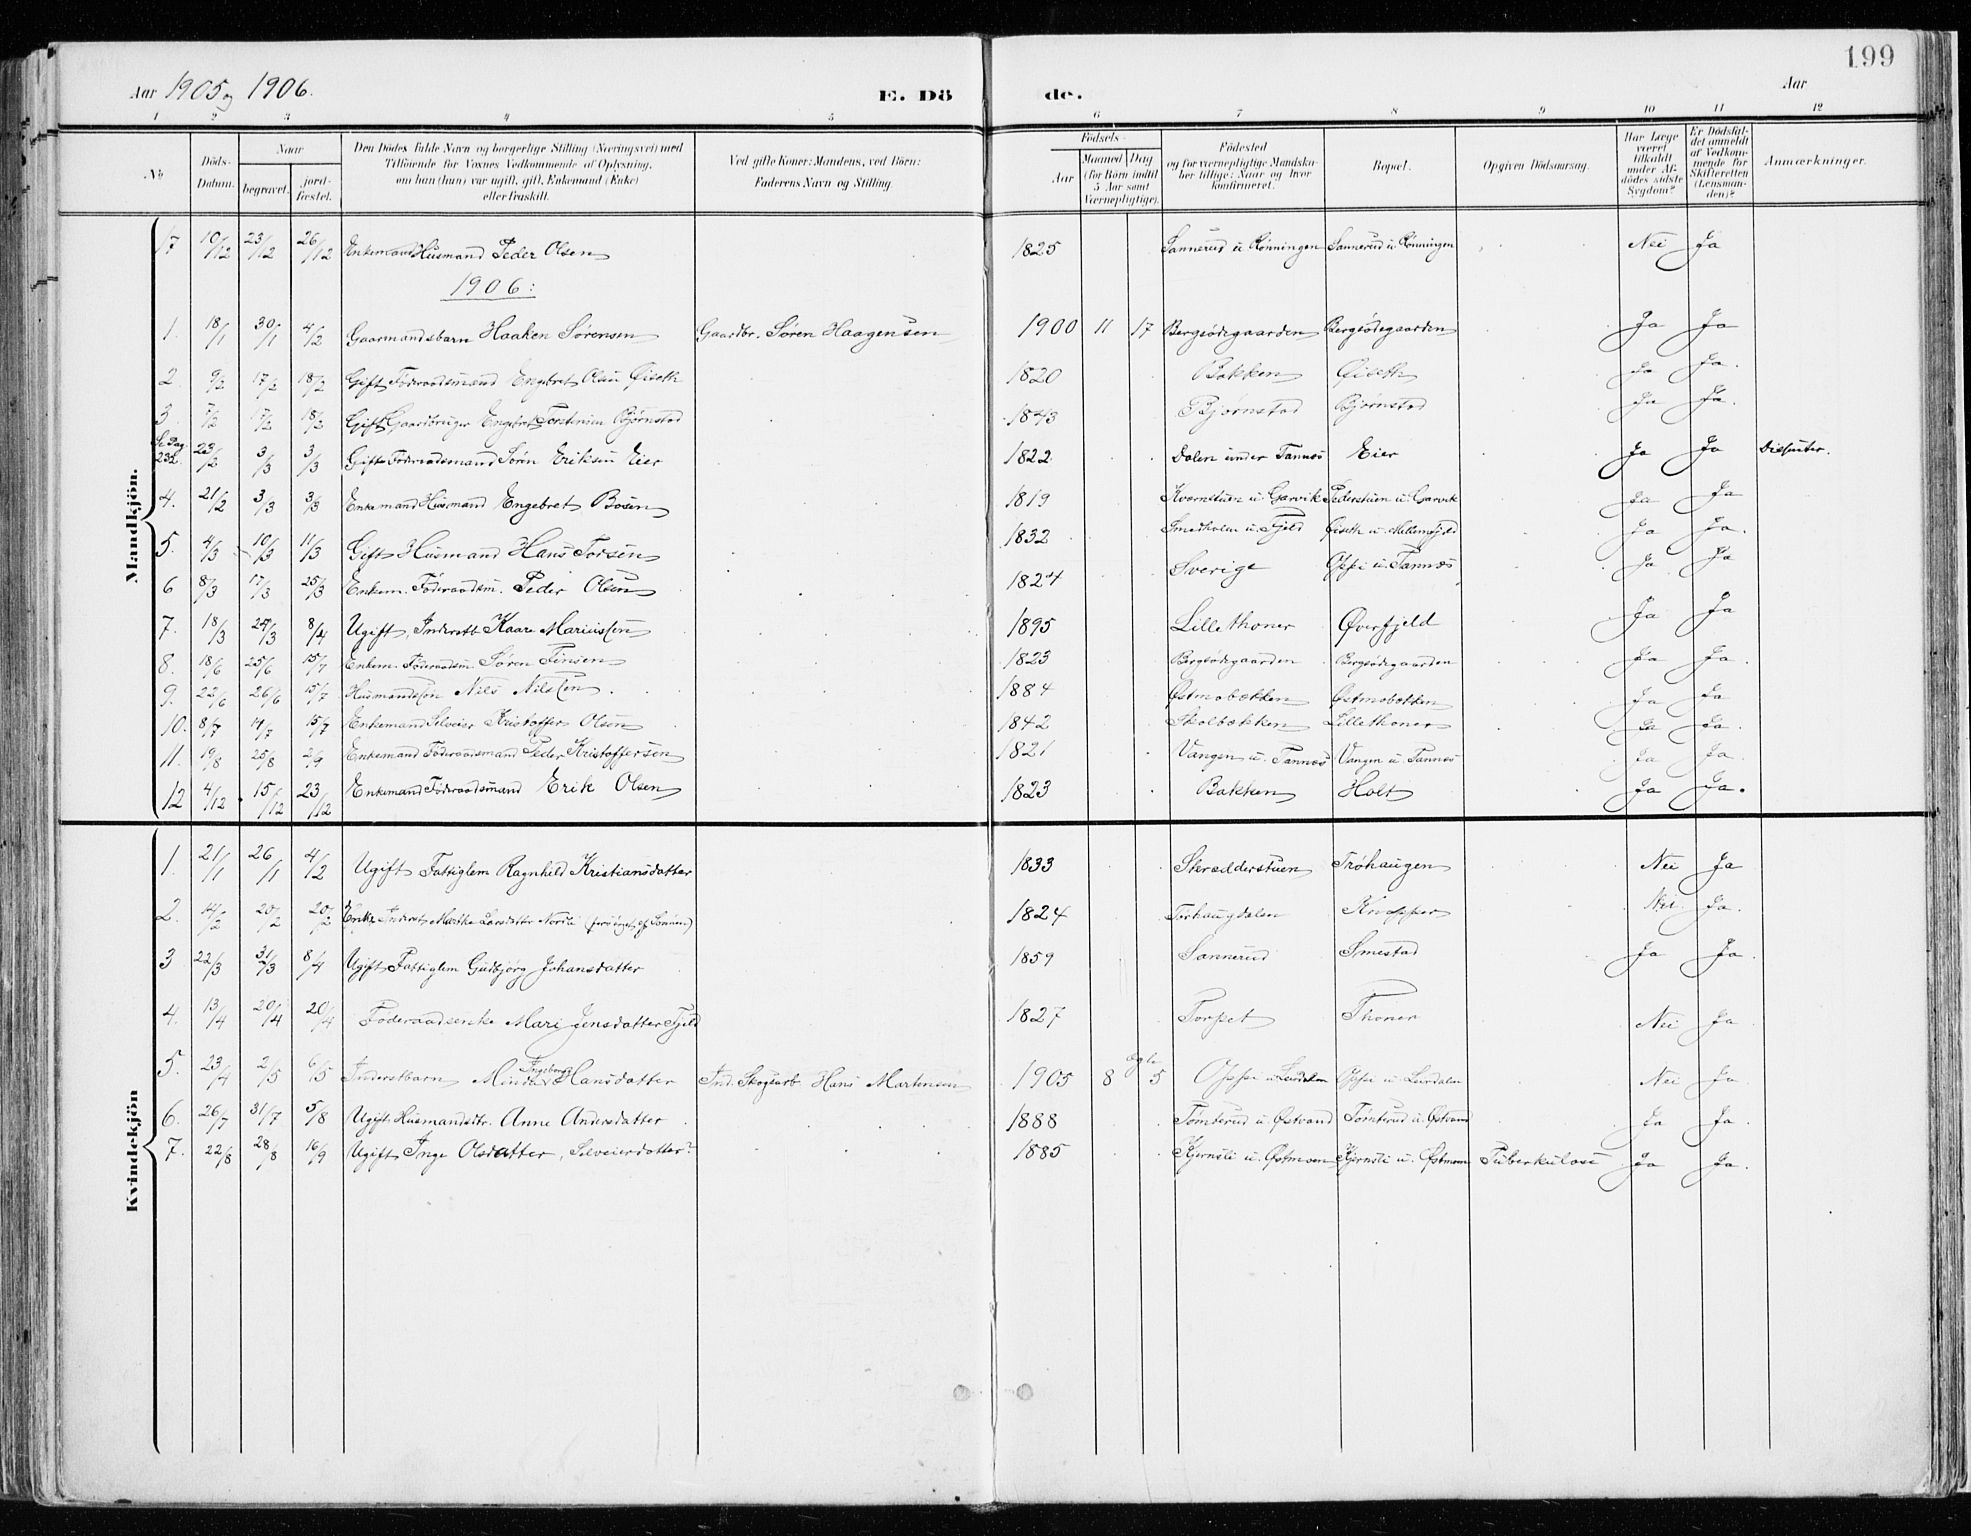 199
Aar 1905 og 1906.
E. Dö de.
Aar
1 2 3 4 5 6 7 8 9 10 11 12
No
Döds-Datum.
Naar
begravet.
jord-fæstet.
Den Dödes fulde Navn og borgerlige Stilling (Næringsvei) med Tilföiende for Voxnes Vedkommende af Oplysning, om han (hun) var ugift, gift, Enkemand (Enke) eller fraskilt.
Ved gifte Koner: Mandens, ved Börn: Faderens Navn og Stilling.
Födsels-
Aar
Maaned Dag (for Börn indtil 5 Aar samt Værnepligtige).
Födested og for værnepligtige Mandskaber tillige: Naar og hvor konfirmeret.
Bopæl.
Opgiven Dödsaarsag.
Har Læge været tilkaldt under Afdödes sidste Sygdom?
Er Dödsfaldet anmeldt af Vedkommende for Skifteretten (Lensmanden)?
Anmærkninger.
Mandkjön.
17 10/12 23/12 26/12 Enkemand Husmand Peder Olsen 1825 Sannerud u Rønningen Sannerud u Rønningen Nei Ja
1906:
1. 18/1 30/1 4/2 Gaarmandsbarn Haaken Sørensen Gaardbr. Søren Haagensen 1900 11 17 Bergsödegaarden Bergsödegaarden Ja Ja
2 9/2 17/2 18/2 Gift Föderaadsmand Engebret Olsen Øiseth 1820 Bakken Øiseth Ja Ja.
3 7/2 17/2 18/2 Gift Gaardbruger Engebret Torstensen Bjørnstad 1843 Bjørnstad Bjørnstad Ja Ja.
Se Dag 232. 23/2 3/3 3/3 Gift Föderaadsmand Sören Eriksen Eier 1822 Dalen under Tannæs Eier Ja Ja Dissenter.
4. 21/2 3/3 3/3 Enkemand Husmand Engebret Bosen 1819 Kvernstuen u. Garvik Pederstuen u. Garvik Ja Ja
5. 4/3 10/3 11/3 Gift Husmand Hans Torsen 1832 Smedholm u. Fjeld Øiseth u. Mellemfjeld Ja Ja.
6 8/3 17/3 25/3 Enkem. Föderaadsm. Peder Olsen 1824 Sverige Oppi u. Tannæs Ja Ja
7. 18/3 24/3 8/4 Ugift, Inderstb. Kaare Mariussen 1895 Lillethoner Øverfjeld Ja Ja
8. 18/6 25/6 15/7 Enkem. Föderaadsm Søren Finsen 1823 Bergsödegaarden Bergsödegaarden Ja Ja.
9. 22/6 26/6 15/7 Husmandssøn Nils Nilssen 1884 Østmobækken Østmobækken Ja Ja
10. 8/7 14/7 15/7 Enkemand Selveier Kristoffer Olsen 1842 Skolbækken Lillethoner Ja Ja.
11. 19/8 25/8 2/9 Enkemand Föderaadsmand Peder Kristoffersen 1821 Vangen u. Tannæs Vangen u. Tannæs Ja Ja
12 4/12 15/12 23/12 Enkemand Föderaadsmand Erik Olsen 1823 Bakken Holt Ja Ja.
Kvindekjön
1. 21/1 26/1 4/2 Ugift Fattiglem Ragnhild Kristiansdatter 1833 Skrædderstuen Trøhaugen Nei Ja
2. 14/2 20/2 20/2 Enke Inderst Marthe Larsdatter Nordli 1824 Torhaugdalen Knapper Nei Ja.
3 22/3 31/3 8/4 Ugift Fattiglem Gudbjörg Johansdatter 1859 Sannerud Smestad Ja Ja.
4. 13/4 20/4 20/4 Föderaadsenke Mari Jensdatter Fjeld 1827 Torpet Thoner Nei Ja
5. 23/4 2/5 6/5 Inderstbarn Minda Ingeborg Hansdatter Ind. Skogsarb. Hans Martinsen 1905 8 5 Oppi u Leirdalen Oppi u Leirdalen Nei Ja
6. 26/7 31/7 5/8 Ugift Husmandsdtr. Anne Andersdatter 1888 Tomterud u. Østvand Tomterud u. Østvand Ja Ja.
7. 22/8 28/8 16/9 Ugift Inge Olsdatter, Selveierdatter 1885 Kjernsli u. Østmoen Kjernsli u. Østmoen Tuberkulose Ja Ja.